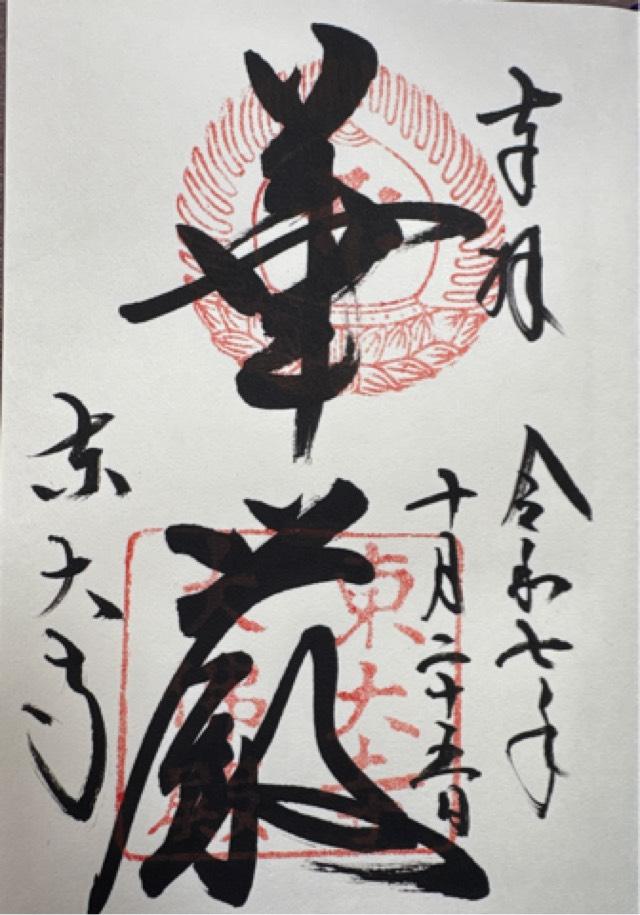 奉拝
令和七年
十月二十五日
華厳
東大寺
東大寺
大仏殿